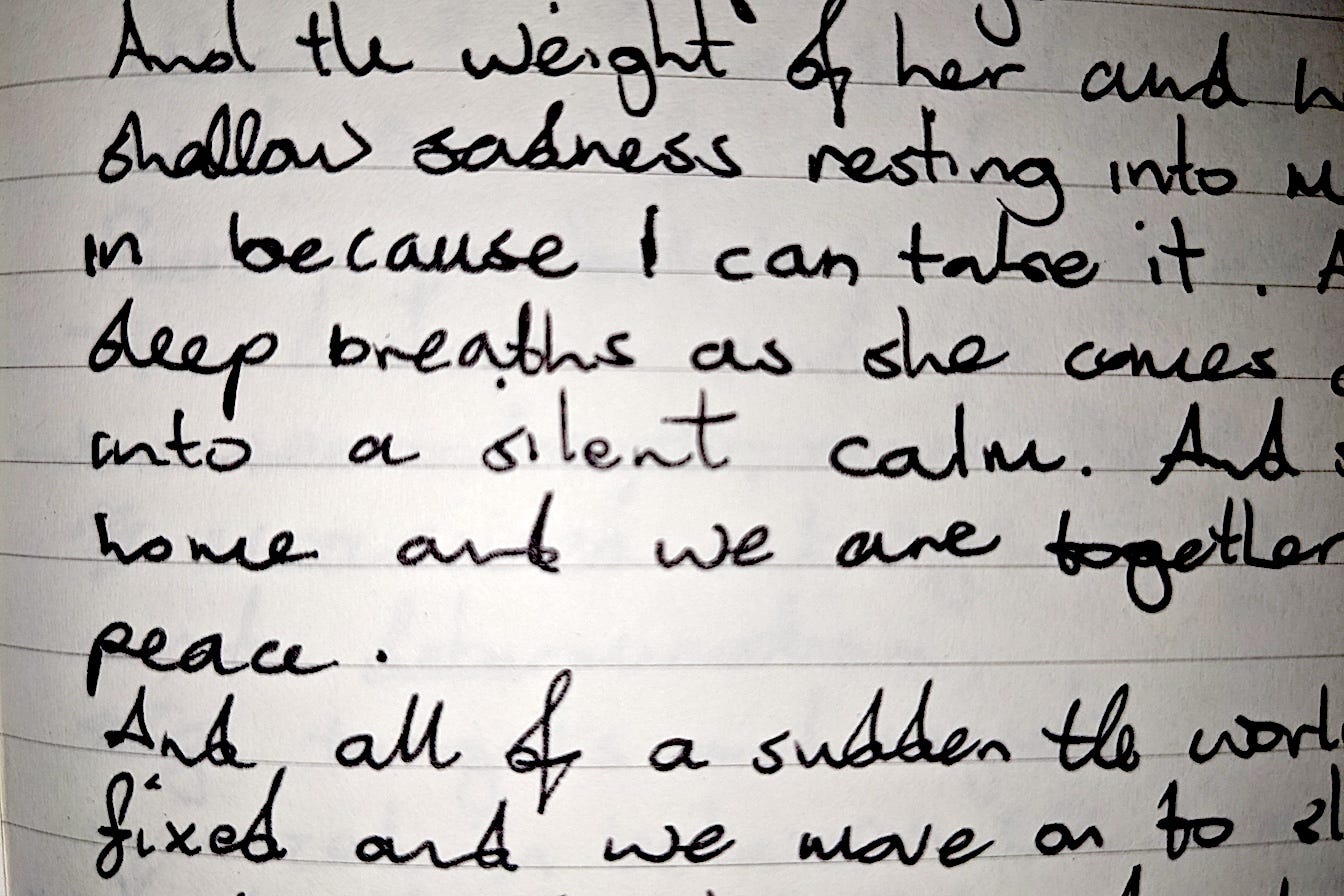 And the weight of her and
shallow sadness resting into
in because I can take it.
deep breaths as she comes
into a silent calm. And
home and we are together
peace.
And all of a sudden the
fixed and we move on to